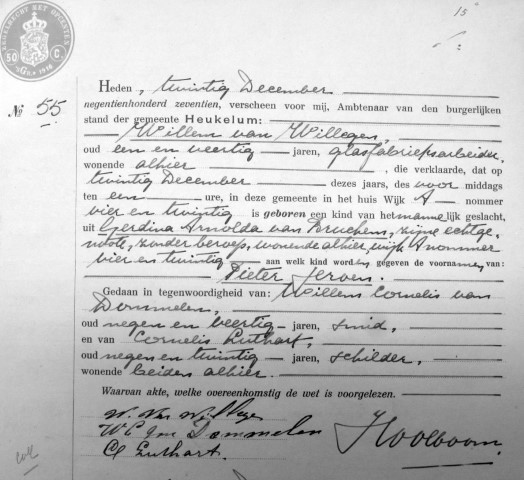 15
50 C
Nº 55
Heden, twintig December
negentienhonderd zeventien, verscheen voor mij, Ambtenaar van den burgerlijken
stand der gemeente Heukelum:
Willem van Willegen,
oud een en veertig jaren, glasfabrieksarbeider,
wonende alhier, die verklaarde, dat op
twintig December dezes jaars, des voor middags
ten een ure, in deze gemeente in het huis Wijk A nommer
vier en twintig is geboren een kind van het mannelijk geslacht,
uit Gerdina Arnolda van Bruchem, zijne echtge-
note, zonder beroep, wonende alhier, wijk A nommer
vier en twintig aan welk kind worden gegeven de voornamen van:
Pieter Jeroen.
Gedaan in tegenwoordigheid van: Willem Cornelis van
Dommelen,
oud negen en veertig jaren, smid,
en van Cornelis Euthart,
oud negen en twintig jaren, schilder,
wonende beiden alhier.
Waarvan akte, welke overeenkomstig de wet is voorgelezen.
W. van Willegen
W C van Dommelen
C Euthart.
Kooloom